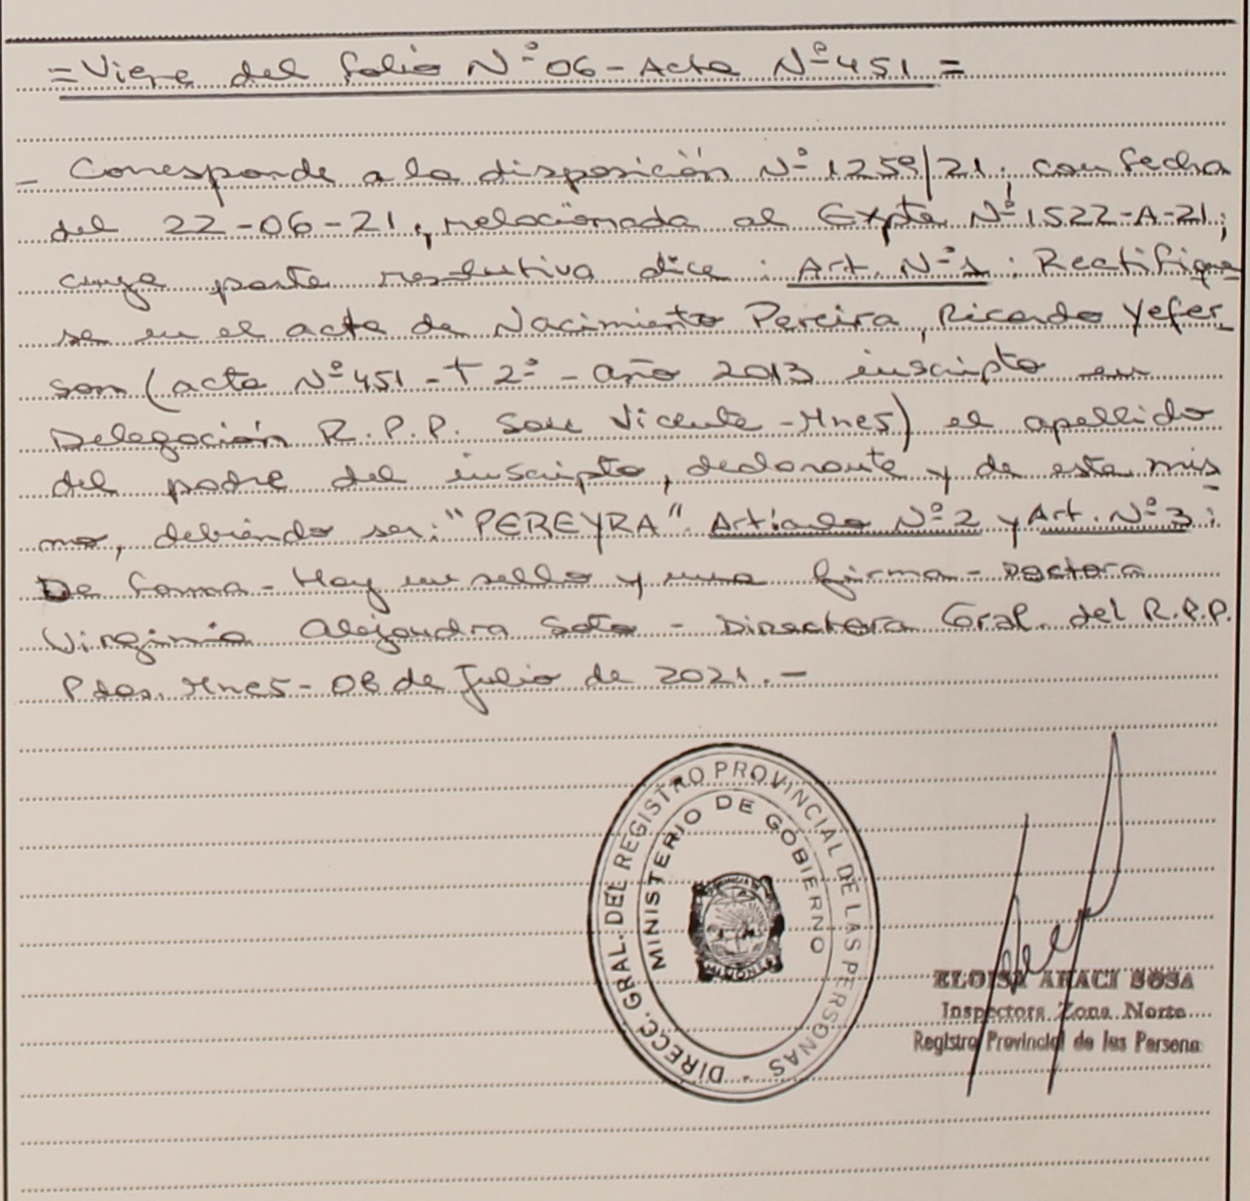 =Viene del folio Nº 06 - Acta Nº 451 =
- Corresponde a la disposición Nº 1259/21, con fecha
del 22-06-21, relacionada al Expte Nº 1522-A-21;
cuya parte resolutiva dice: Art. Nº 1: Rectifique
se en el acta de Nacimiento Pereira, Ricardo Yefer_
son (acta Nº 451 - T 2º - año 2013 inscripto en
Delegación R.P.P. San Vicente - Mnes) el apellido
del padre del inscripto, declarante y de este mis
mo, debiendo ser: "PEREYRA" Artículo Nº 2 y Art. Nº 3:
De forma - Hay un sello y una firma - Doctora
Virginia Alejandra Soto - Directora Gral. del R.P.P.
Pdas. Mnes - 08 de Julio de 2021. -
DIRECC. GRAL. DEL REGISTRO PROVINCIAL DE LAS PERSONAS -
MINISTERIO DE GOBIERNO
ELOISA ARACI SOSA
Inspectora Zona Norte
Registro Provincial de las Persona